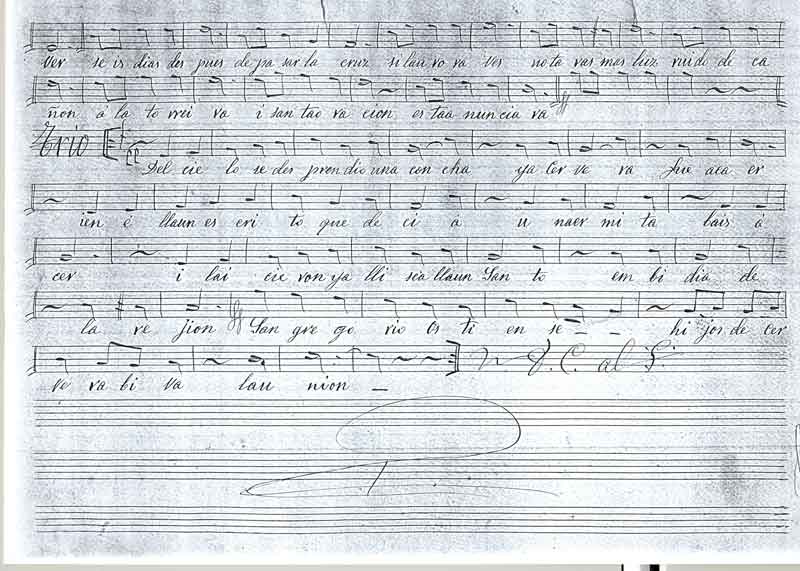 ver se is dias des pues de pa sar la cruz si lau ro ra ves no ta ras mas luz rui do de ca
ñon á la to rrei va i san tao va cion es taa nun cia va
Trio Del cie lo se des pren dio una con cha ya Cer ve ra fue aca er
ien é llaun es cri to que de ci a u naer mi ta lais á
cer i lai cie ron ya lli sea llaun San to em bi dia de
la re jion San gre go rio és ti en se hi jos de cer
ve ra bi va lau nion D.C. al